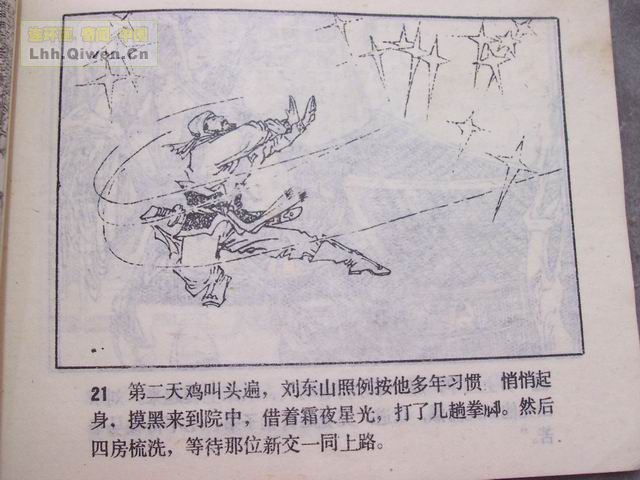 连环画 看图 中国
Lhh.Qiwen.Cn
21 第二天鸡叫头遍，刘东山照例按他多年习惯 悄悄起
身，摸黑来到院中，借着霜夜星光，打了几趟拳脚。然后
四房梳洗，等待那位新交一同上路。